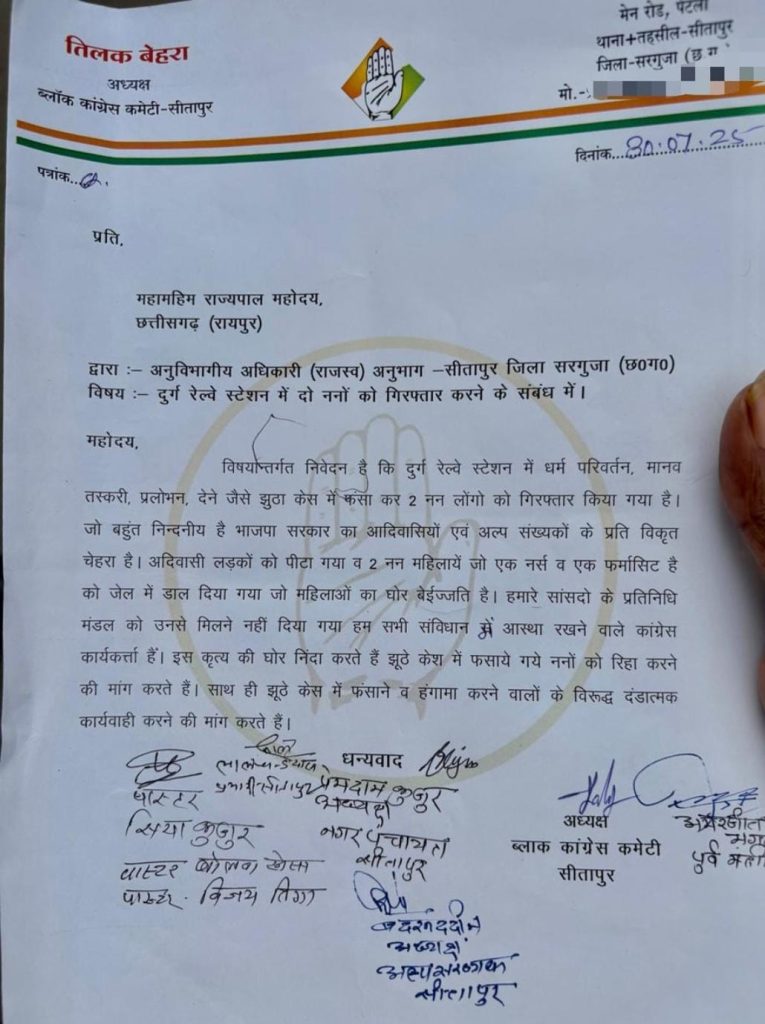 तिलक बेहरा
अध्यक्ष
ब्लॉक कांग्रेस कमेटी-सीतापुर
मेन रोड, पेटला
थाना+तहसील-सीतापुर
जिला-सरगुजा (छ ग
मो.-
पत्रांक...
दिनांक...30.07.25
प्रति,
महामहिम राज्यपाल महोदय,
छत्तीसगढ़ (रायपुर)
द्वारा :– अनुविभागीय अधिकारी (राजस्व) अनुभाग –सीतापुर जिला सरगुजा (छ0ग0)
विषय :– दुर्ग रेल्वे स्टेशन में दो ननों को गिरफ्तार करने के संबंध में।
महोदय,
विषयान्तर्गत निवेदन है कि दुर्ग रेल्वे स्टेशन में धर्म परिवर्तन, मानव
तस्करी, प्रलोभन, देने जैसे झुठा केस में फसा कर 2 नन लोंगो को गिरफ्तार किया गया है।
जो बहुंत निन्दनीय है भाजपा सरकार का आदिवासियों एवं अल्प संख्यकों के प्रति विकृत
चेहरा है। अदिवासी लड़कों को पीटा गया व 2 नन महिलायें जो एक नर्स व एक फर्मासिट है
को जेल में डाल दिया गया जो महिलाओं का घोर बेईज्जति है। हमारे सांसदो के प्रतिनिधि
मंडल को उनसे मिलने नहीं दिया गया हम सभी संविधान में आस्था रखने वाले कांग्रेस
कार्यकर्त्ता हैं। इस कृत्य की घोर निंदा करते हैं झूठे केश में फसाये गये ननों को रिहा करने
की मांग करते हैं। साथ ही झूठे केस में फंसाने व हंगामा करने वालों के विरूद्ध दंडात्मक
कार्यवाही करने की मांग करते हैं।
धन्यवाद
पास्टर
सिया कुजुर
पास्टर
पास्टर. विजय तिग्गा
प्रभारी-सीतापुर
प्रेमदान कुजुर
अध्यक्ष
नगर पंचायत
सीतापुर
अध्यक्ष
अल्पसंख्यक
सीतापुर
अध्यक्ष
ब्लाक कांग्रेस कमेटी
सीतापुर
अमरजीत
भग
पुर्व मंत्री